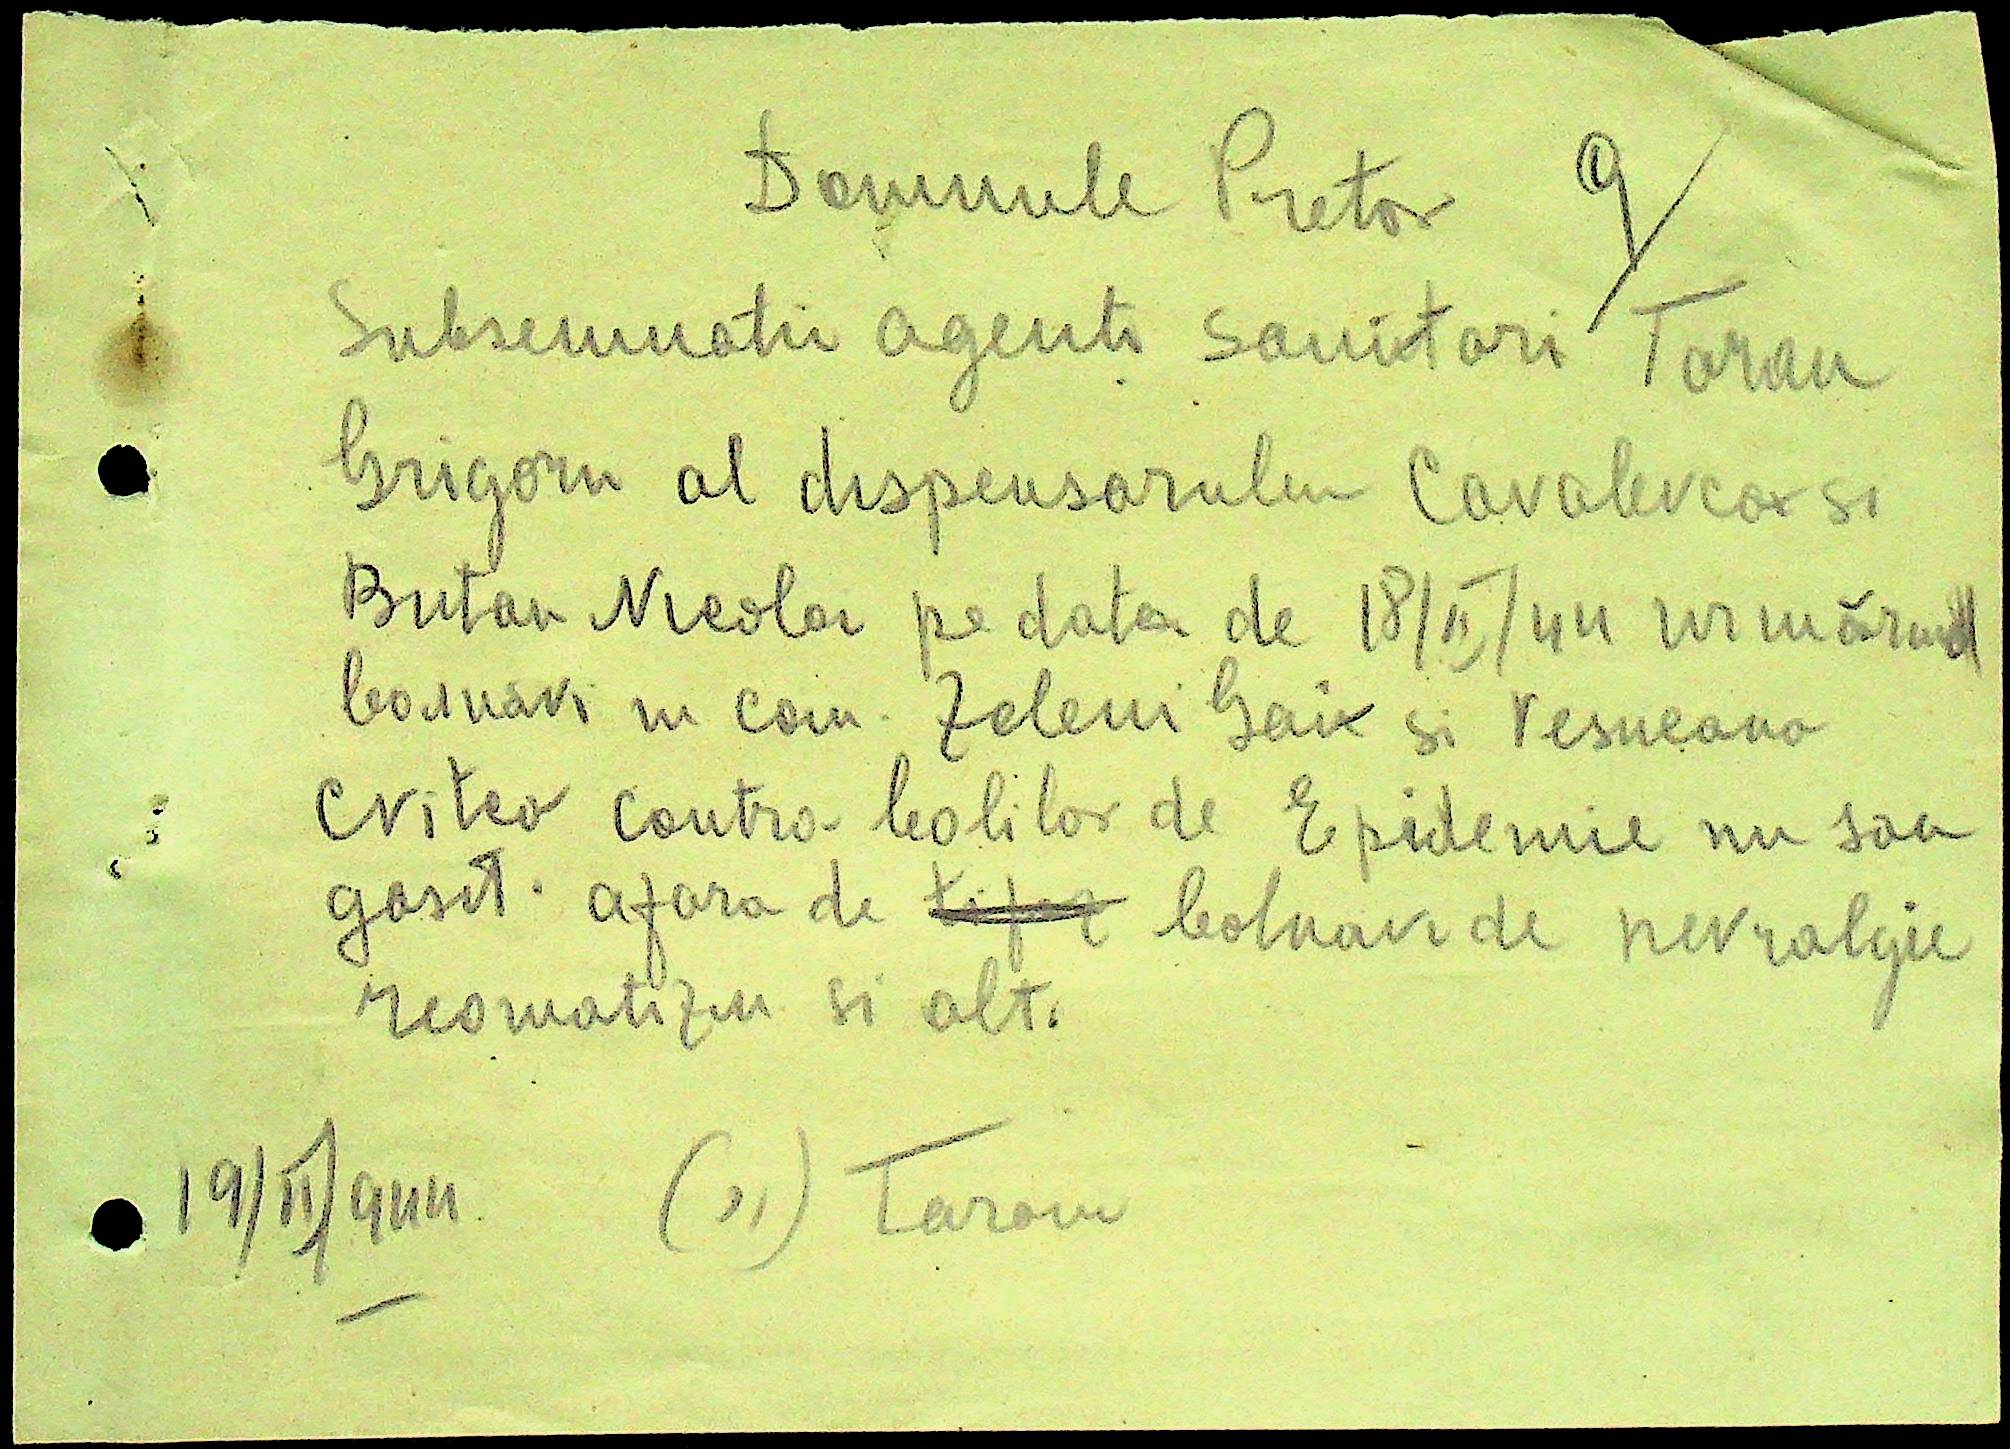 Domnule Pretor 9/
Subsemnatii agenti sanitari Taran
Grigoru al dispensarului Covalevca si
Butan Nicolai pe data de 18/II/44 urmărind
bolnavi in com. Zeleni Gai si Vesneana
Cvitca contra bolilor de Epidemie nu sau
gasit. afara de tifoz bolnavi de nevralgie
reomatizm si alt.
19/II/944. (ss) Taran